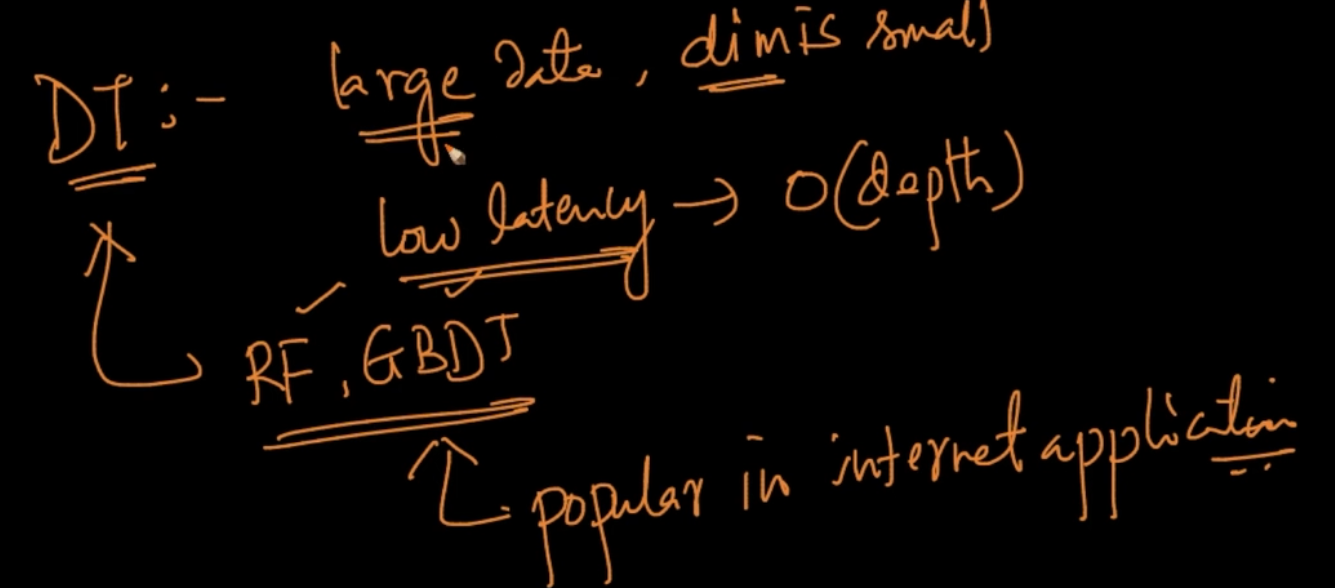 DT :- large data, dim is small
low latency → O(depth)
RF, GBDT
popular in internet application